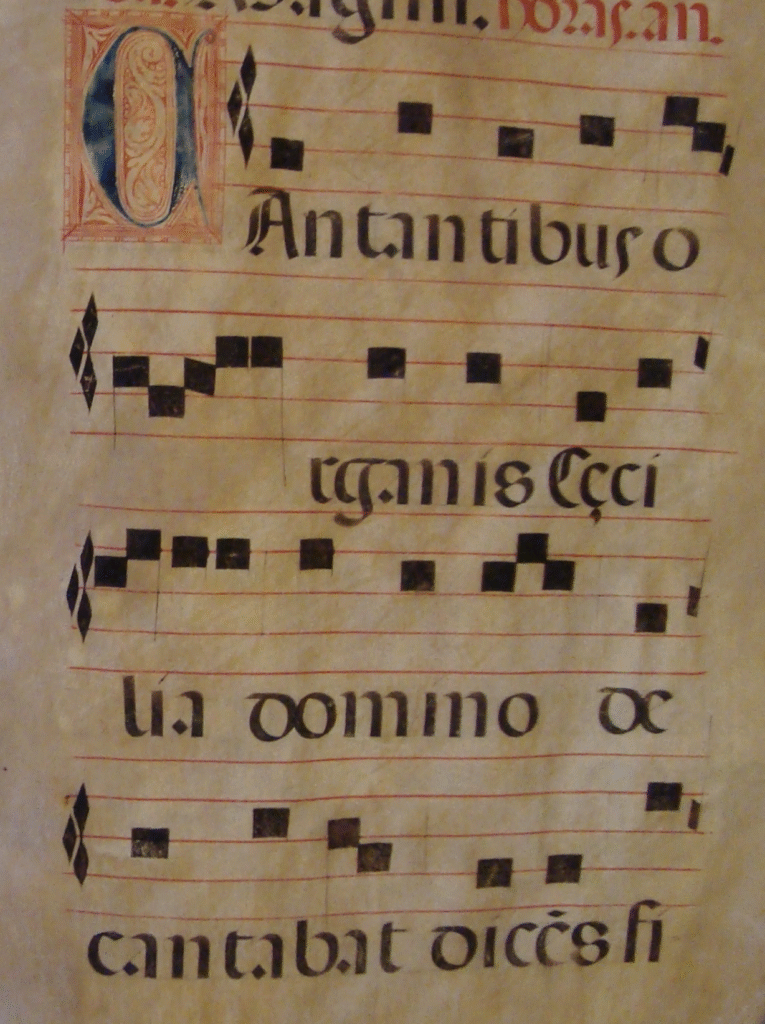 horas. an.
CAntantibus o
rganis Cęci
lia domino de
cantabat dicēs fi